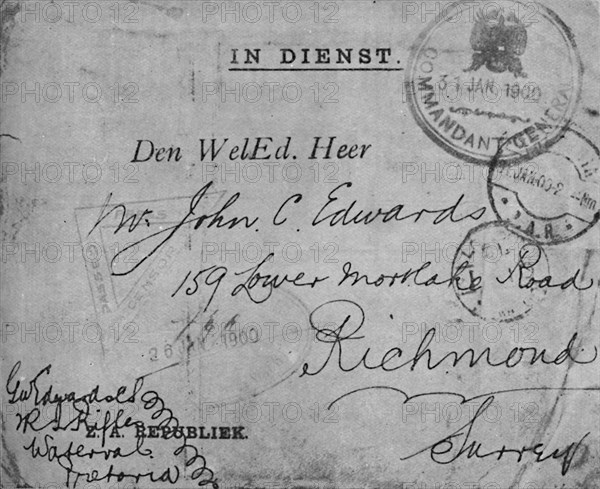 IN DIENST.
COMMANDANT-GENERAAL
31 JAN. 1900
Den WelEd. Heer
JAN.00
Z.A.R.
Mr John C. Edwards
159 Lower Mortlake Road
PASSED
CENSOR
26 1900
Richmond
Surrey
G W Edwards
R I Rifles
Z. A. REPUBLIEK.
Waterval
Pretoria